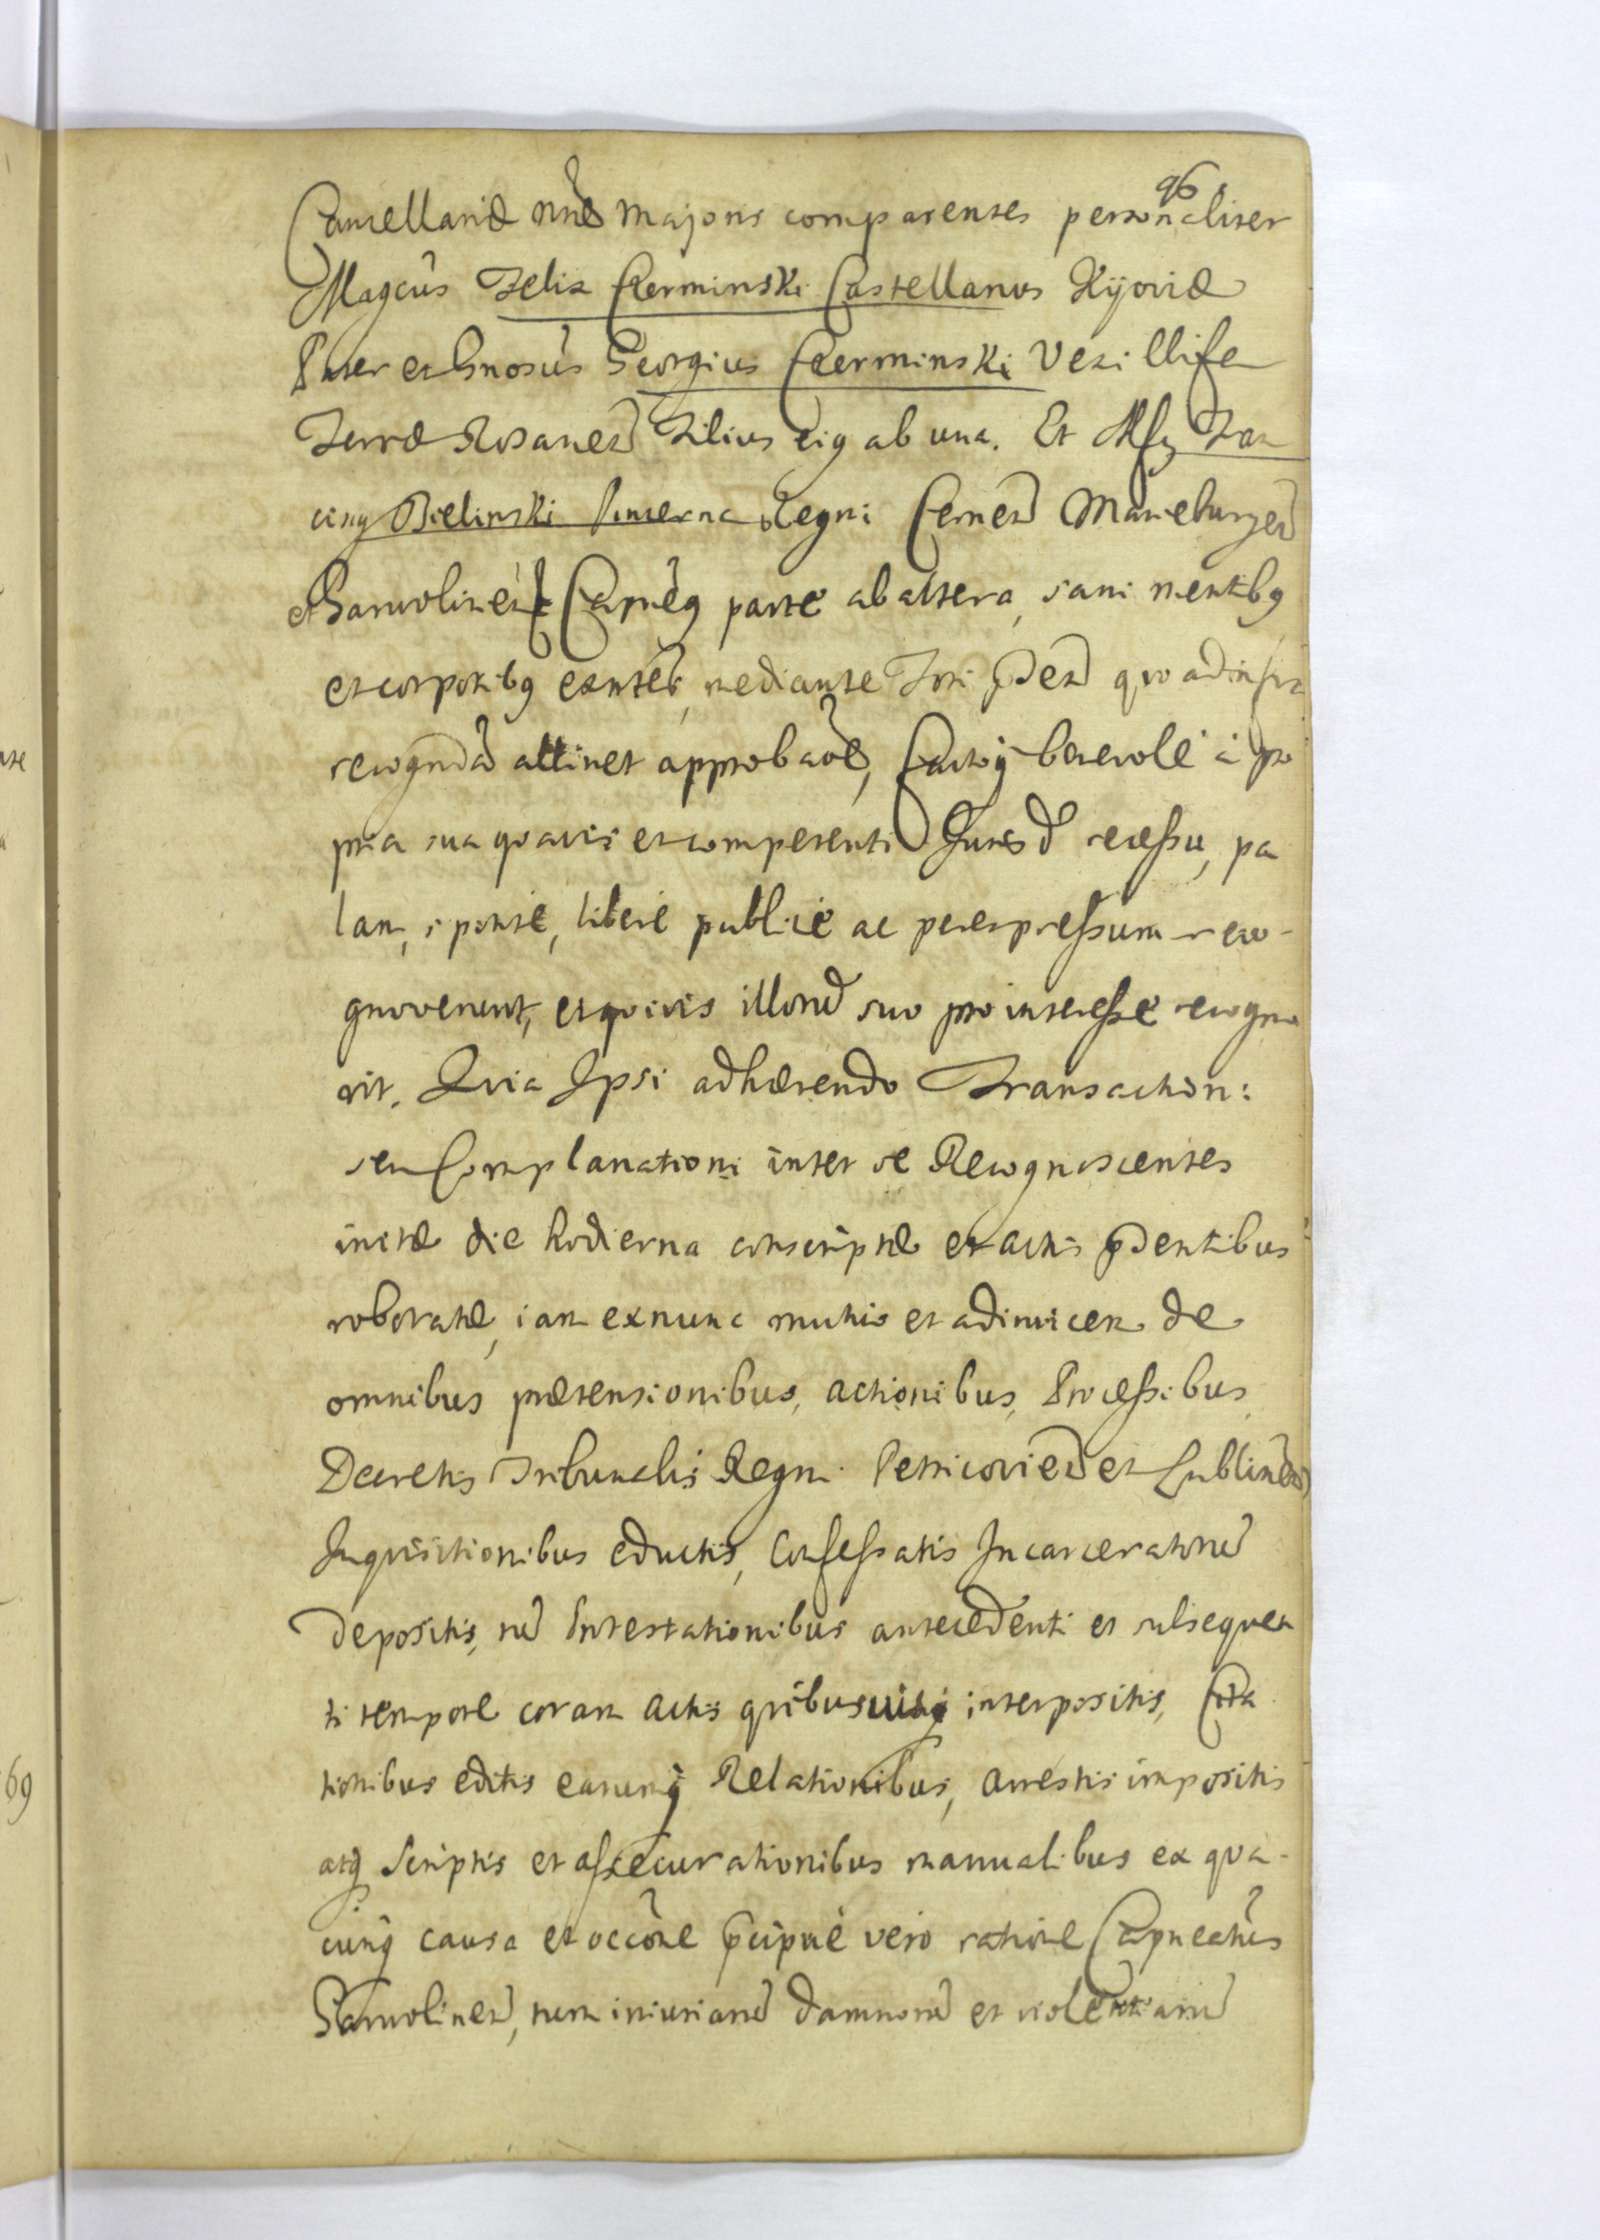 96
Cancellariæ nræ Majoris comparentes personaliter
Magcus Felix Czerminski Castellanus Kijoviæ
Pater et Gnosus Georgius Czerminski Vexillifer
Terræ Rosanen Filius eiq ab una. Et Mfq Fran
cisq Bielinski Pincerna Regni Cernen Marieburgen
et Garwolinen Capneq parte ab altera, sani mentibq
et corporibq exntes, mediante Fori pden quo ad infra
recognda attinet approbaoe, Factoq benevole à pro
pria sua quavis et competenti Jurisd recessu, pa
lam, sponte, libere publicè ac per expressum reco-
gnoverunt, et quivis illorū suo pro interesse recogno
vit. Quia Ipsi adhærendo Transaction:
seu Complanationi inter se Recognoscentes
initæ die hodierna conscriptæ et actis pdentibus
roboratæ, iam ex nunc mutuo et ad invicem de
omnibus prætensionibus, actionibus, Processibus
Decretis Tribunalis Regni Petricovien et Lublinen
Inquisitionibus eductis, Confessatis Incarceratorū
depositis, nū Protestationibus antecedenti et subsequen
ti tempore coram actis quibusvisq interpositis, Cita
tionibus editis earumq Relationibus, arrestis impositis
atq Scriptis et assecurationibus manualibus ex qua-
cunq causa et occone pcipuè vero ratione Capneatus
Garwolinen, num iniuriarū damnorū et violentiarū